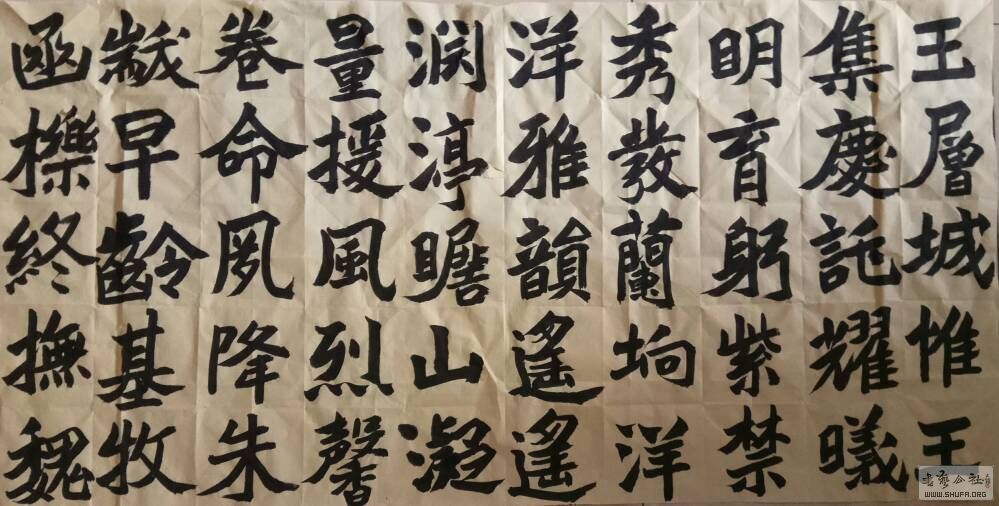 王層城惟王
集慶託耀曦
明育躬紫禁
秀發蘭坰洋
洋雅韻遙遙
淵渟瞻山凝
量援風烈馨
卷命夙降朱
黻早齡基牧
函櫟終撫魏
书艺公社
WWW.SHUFA.ORG